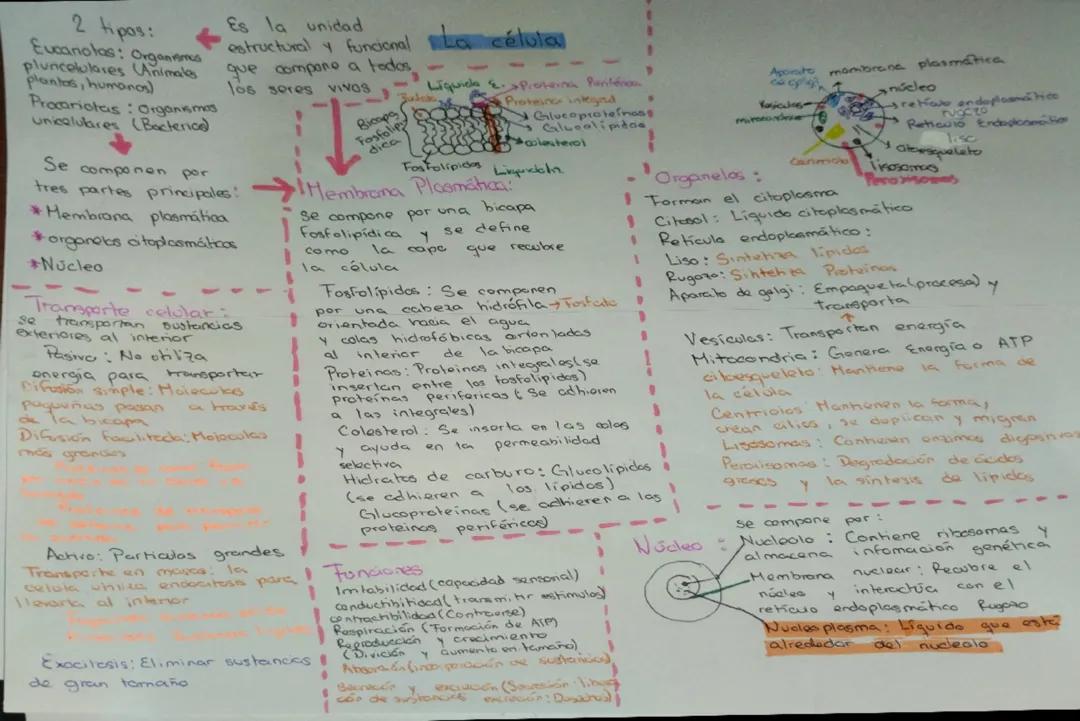 La célula
Es la unidad
estructural y funcional
que compone a todos
los seres vivos
2 tipos:
Eucariotas: Organismos
pluricelulares (Animales
plantas, humanos)
Procariotas: Organismos
unicelulares (Bacterias)
Se componen por
tres partes principales:
* Membrana plasmática
* organelos citoplasmáticos
* Núcleo
Transporte celular:
se transportan sustancias
exteriores al interior
Pasivo: No utiliza
energía para transportar
Difusión simple: Moleculas
pequeñas pasan a través
de la bicapa
Difusión facilitada: Moleculas
más grandes
Activo: Particulas grandes
Transporte en masa: la
celula utiliza endocitosis para
llevarla al interior
Exocitosis: Eliminar sustancias
de gran tamaño
Líquido E.
Proteina Periférica
Proteina integral
Glucoproteínas
Glucolípidos
colesterol
Bicapa
Fosfolipi
dica
Fosfolípidos
Membrana Plasmática:
se compone por una bicapa
fosfolipídica y se define
como la capa que recubre
la célula
Fosfolípidos: Se componen
por una cabeza hidrófila → Fosfato
orientada hacia el agua
y colas hidrofóbicas
al interior de la bicapa
Proteinas: Proteinas integrales (se
insertan entre los fosfolípidos)
proteínas perifericas (Se adhieren
a las integrales)
Colesterol: Se inserta en las colas
y ayuda en la permeabilidad
selectiva
Hidratos de carburo: Glucolípidos
(se adhieren a los lípidos)
Glucoproteínas (se adhieren a las
proteinas periféricas)
Funciones
Irritabilidad (capacidad sensorial)
conductibilidad (transmitir estimulos)
contractibilidad (Contraerse)
Respiración (Formación de ATP)
Reproducción y crecimiento
(División y aumento en tamaño)
Absorción (incorporación de sustancias)
Secreción y excreción (Secreción: libera
ción de sustancias excreción: Desechos)
Aparato
de golgi
membrana plasmática
núcleo
retículo endoplasmático
rugozo
Retículo Endoplasmático
liso
citoesqueleto
lisosomas
Peroxisomas
Centriolo
mitocondria
Vesículas
Organelos:
Forman el citoplasma
Citosol: Líquido citoplasmático
Retículo endoplasmático:
Liso: Sintetiza lípidos
Rugozo: Sintetiza Proteinas
Aparato de golgi: Empaqueta (procesa) y
transporta
Vesículas: Transportan energía
Mitocondria: Genera Energía o ATP
citoesqueleto: Mantiene la forma de
la célula
Centriolos: Mantienen la forma,
crean cilios, se duplican y migran
Lisosomas: Contienen enzimas digestivas
Peroxisomas: Degradación de ácidos
grasos y la síntesis de lípidos
Núcleo:
se compone por:
Nucleolo: Contiene ribosomas y
almacena información genética
Membrana nuclear: Recubre el
núcleo y interactúa con el
retículo endoplasmático Rugozo
Nucleoplasma: Líquido que está
alrededor del nucleolo